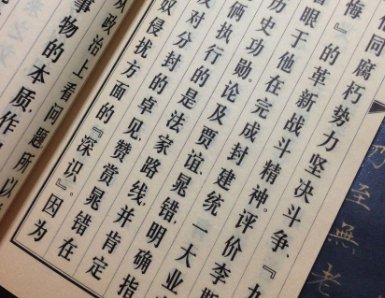 同腐朽势力坚决斗争、『九
悔』的革新战斗精神。评价李
着眼于他在完成封建统一大业
历史功勋。论及贾谊、晁错，明确指
俩执行的是法家路线，并肯定
反对分封的卓见，赞赏晁错在
奴侵扰方面的『深识』。因为
从政治上看问题，所以
事物的本质，作
乃至無老